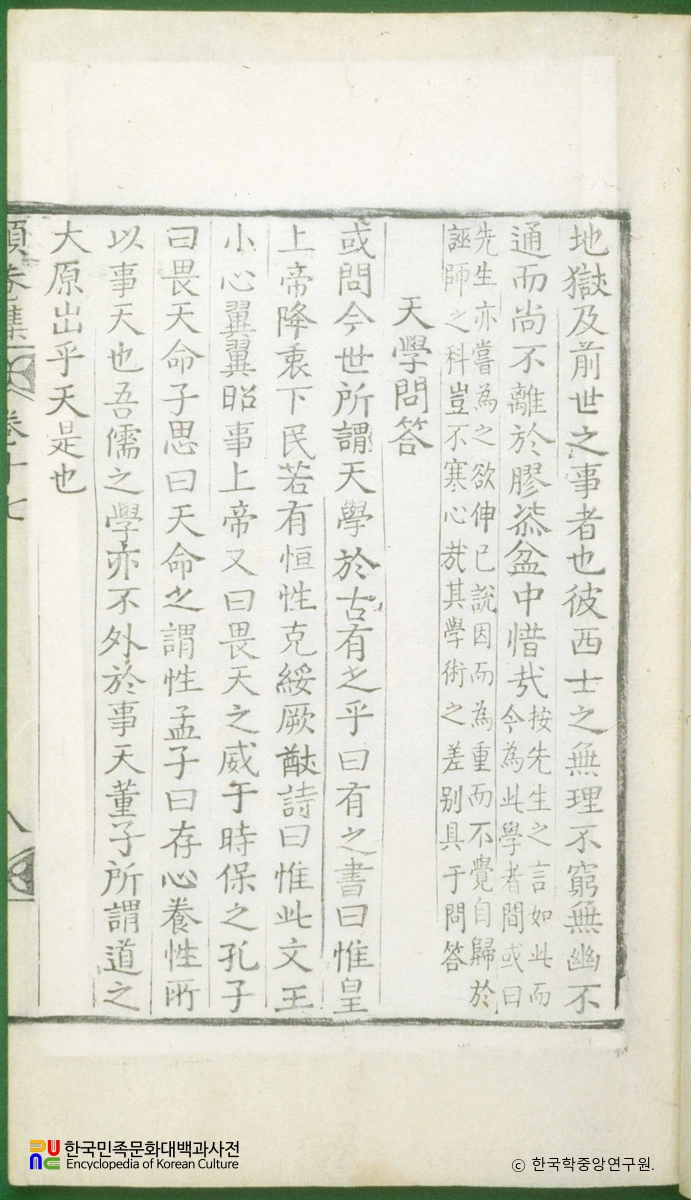 地獄及前世之事者也彼西士之無理不窮無幽不
通而尚不離於膠漆盆中惜哉按先生之言如此而
今為此學者間或曰
先生亦嘗為之欲伸已說因而為重而不覺自歸於
誣師之科豈不寒心哉其學術之差別具于問答
天學問答
或問今世所謂天學於古有之乎曰有之書曰惟皇
上帝降衷下民若有恒性克綏厥猷詩曰惟此文王
小心翼翼昭事上帝又曰畏天之威于時保之孔子
曰畏天命子思曰天命之謂性孟子曰存心養性所
以事天也吾儒之學亦不外於事天董子所謂道之
大原出乎天是也
順菴集 卷十七 八
한국민족문화대백과사전
Encyclopedia of Korean Culture
ⓒ 한국학중앙연구원.